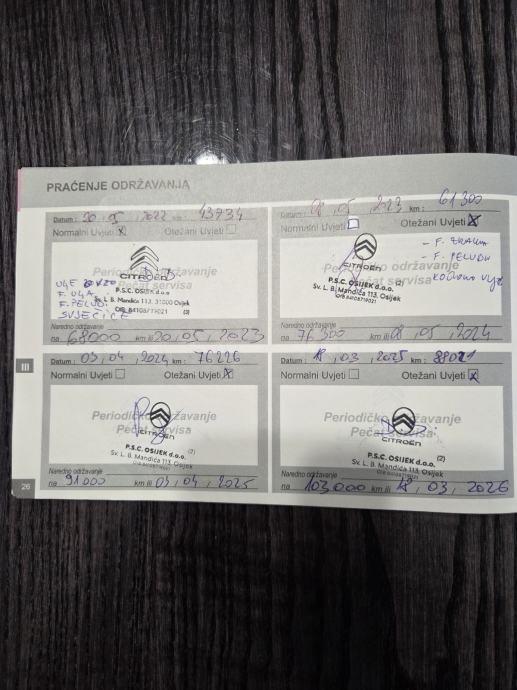 PRAĆENJE ODRŽAVANJA
Datum : 20 , 05 , 2022 km : 43734
Normalni Uvjeti x Otežani Uvjeti
CITROËN
Periodičko održavanje
Pečat servisa
P.S.C. OSIJEK d.o.o.
Sv. L. B. Mandića 113, 31000 Osijek
OIB 84108719021 (3)
ULJE
F. ULJA
F. PELUDI
SVJEĆICE
Naredno održavanje
na 68000 km ili 20 , 05 , 2023
Datum : 08 , 05 , 2023 km : 61300
Normalni Uvjeti Otežani Uvjeti x
CITROËN
Periodičko održavanje
Pečat servisa
(2)
P.S.C. OSIJEK d.o.o.
Sv. L. B. Mandića 113, Osijek
OIB 84108719021
- F. ZRAKA
- F. PELUDI
Naredno održavanje
na 76 300 km ili 08 , 05 , 2024
III
Datum : 03 , 04 , 2024 km : 76226
Normalni Uvjeti Otežani Uvjeti x
Periodičko održavanje
Pečat servisa
CITROËN
P.S.C. OSIJEK d.o.o. (2)
Sv. L. B. Mandića 113, Osijek
OIB 84108719021
Naredno održavanje
na 91000 km ili 03 , 04 , 2025
Datum : 18 , 03 , 2025 km : 88021
Normalni Uvjeti Otežani Uvjeti x
Periodičko održavanje
Pečat servisa
CITROËN
P.S.C. OSIJEK d.o.o. (2)
Sv. L. B. Mandića 113, Osijek
OIB 84108719021
Naredno održavanje
na 103000 km ili 18 , 03 , 2026
26